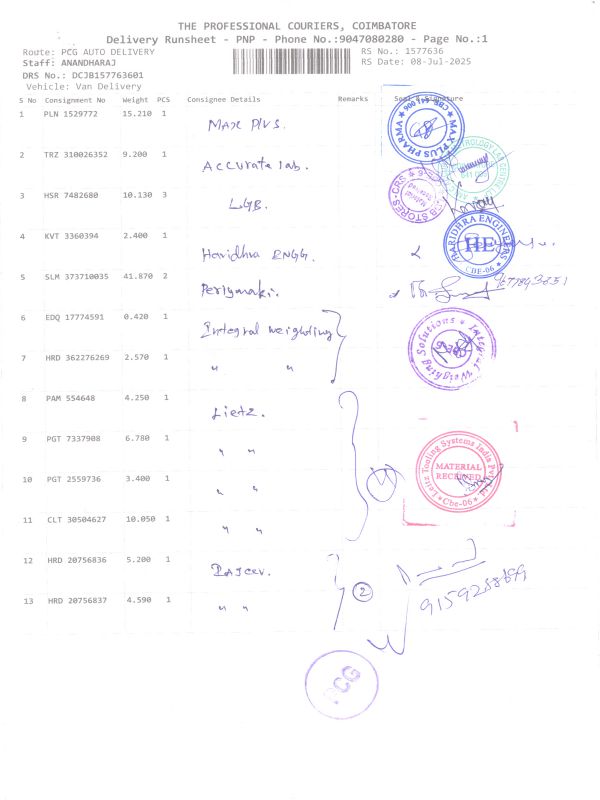 THE PROFESSIONAL COURIERS, COIMBATORE
Delivery Runsheet - PNP - Phone No.:9047080280 - Page No.:1
Route: PCG AUTO DELIVERY
RS No.: 1577636
Staff: ANANDHARAJ
RS Date: 08-Jul-2025
DRS No.: DCJB157763601
Vehicle: Van Delivery
S No Consignment No Weight PCS Consignee Details Remarks Seal & Signature
1 PLN 1529772 15.210 1 Max Plus.
MAX PLUS PHARMA CBE-641 006
2 TRZ 310026352 9.200 1 Accurate lab.
3 HSR 7482680 10.130 3 LGB.
LGB STORES-CRS &
Material Received
4 KVT 3360394 2.400 1 Haridhra ENGG.
HARIDHRA ENGINEERS
HE
CBE-06
5 SLM 373710035 41.870 2
6 EDQ 17774591 0.420 1 Integral weighting
7 HRD 362276269 2.570 1 " "
Integral Weighing Solutions
CBE-6
8 PAM 554648 4.250 1 Lietz.
9 PGT 7337908 6.780 1 " "
10 PGT 2559736 3.400 1 " "
11 CLT 30504627 10.050 1 " "
4
Leitz Tooling Systems India Pvt
MATERIAL
RECEIVED
Cbe-06
12 HRD 20756836 5.200 1 Rajeev.
13 HRD 20756837 4.590 1 " "
2
PCG